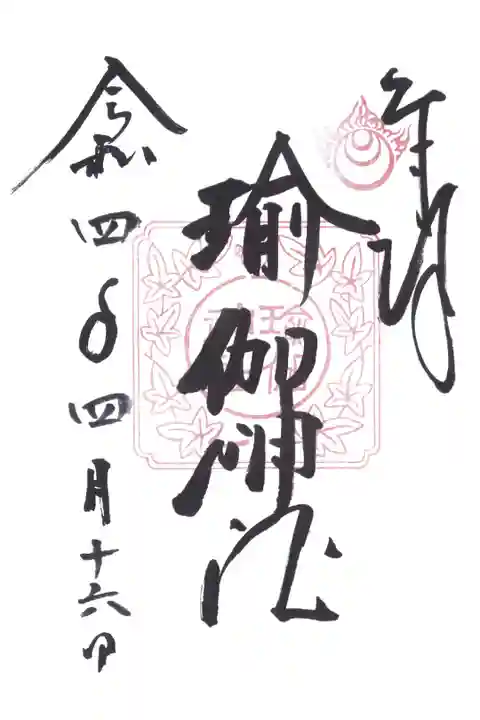 奉拝
瑜伽神社
令和四年四月十六日